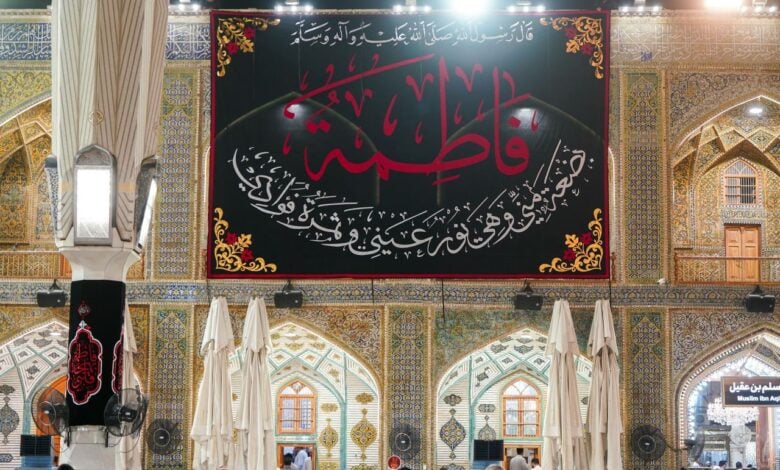 قال رسول الله صلى الله عليه وآله وسلم
فاطمة
بضعة مني وهي نور عيني وثمرة فؤادي
مسلم بن عقيل
Muslim ibn Aqil